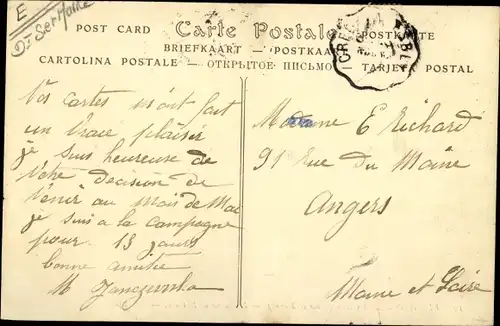 E
POST CARD Carte Postale POSTKARTE
BRIEFKAART — POSTKAART
CARTOLINA POSTALE — ОТКРЫТОЕ ПИСЬМО — TARJETA POSTAL
Vos cartes m'ont fait
un vraie plaisir
je suis heureuse de
votre decision de
venir au mois de Mai
je suis a la campagne
pour 15 jours
bonne amitie
M
Madame E Richard
91 Rue du Maine
Angers
Maine et Loire